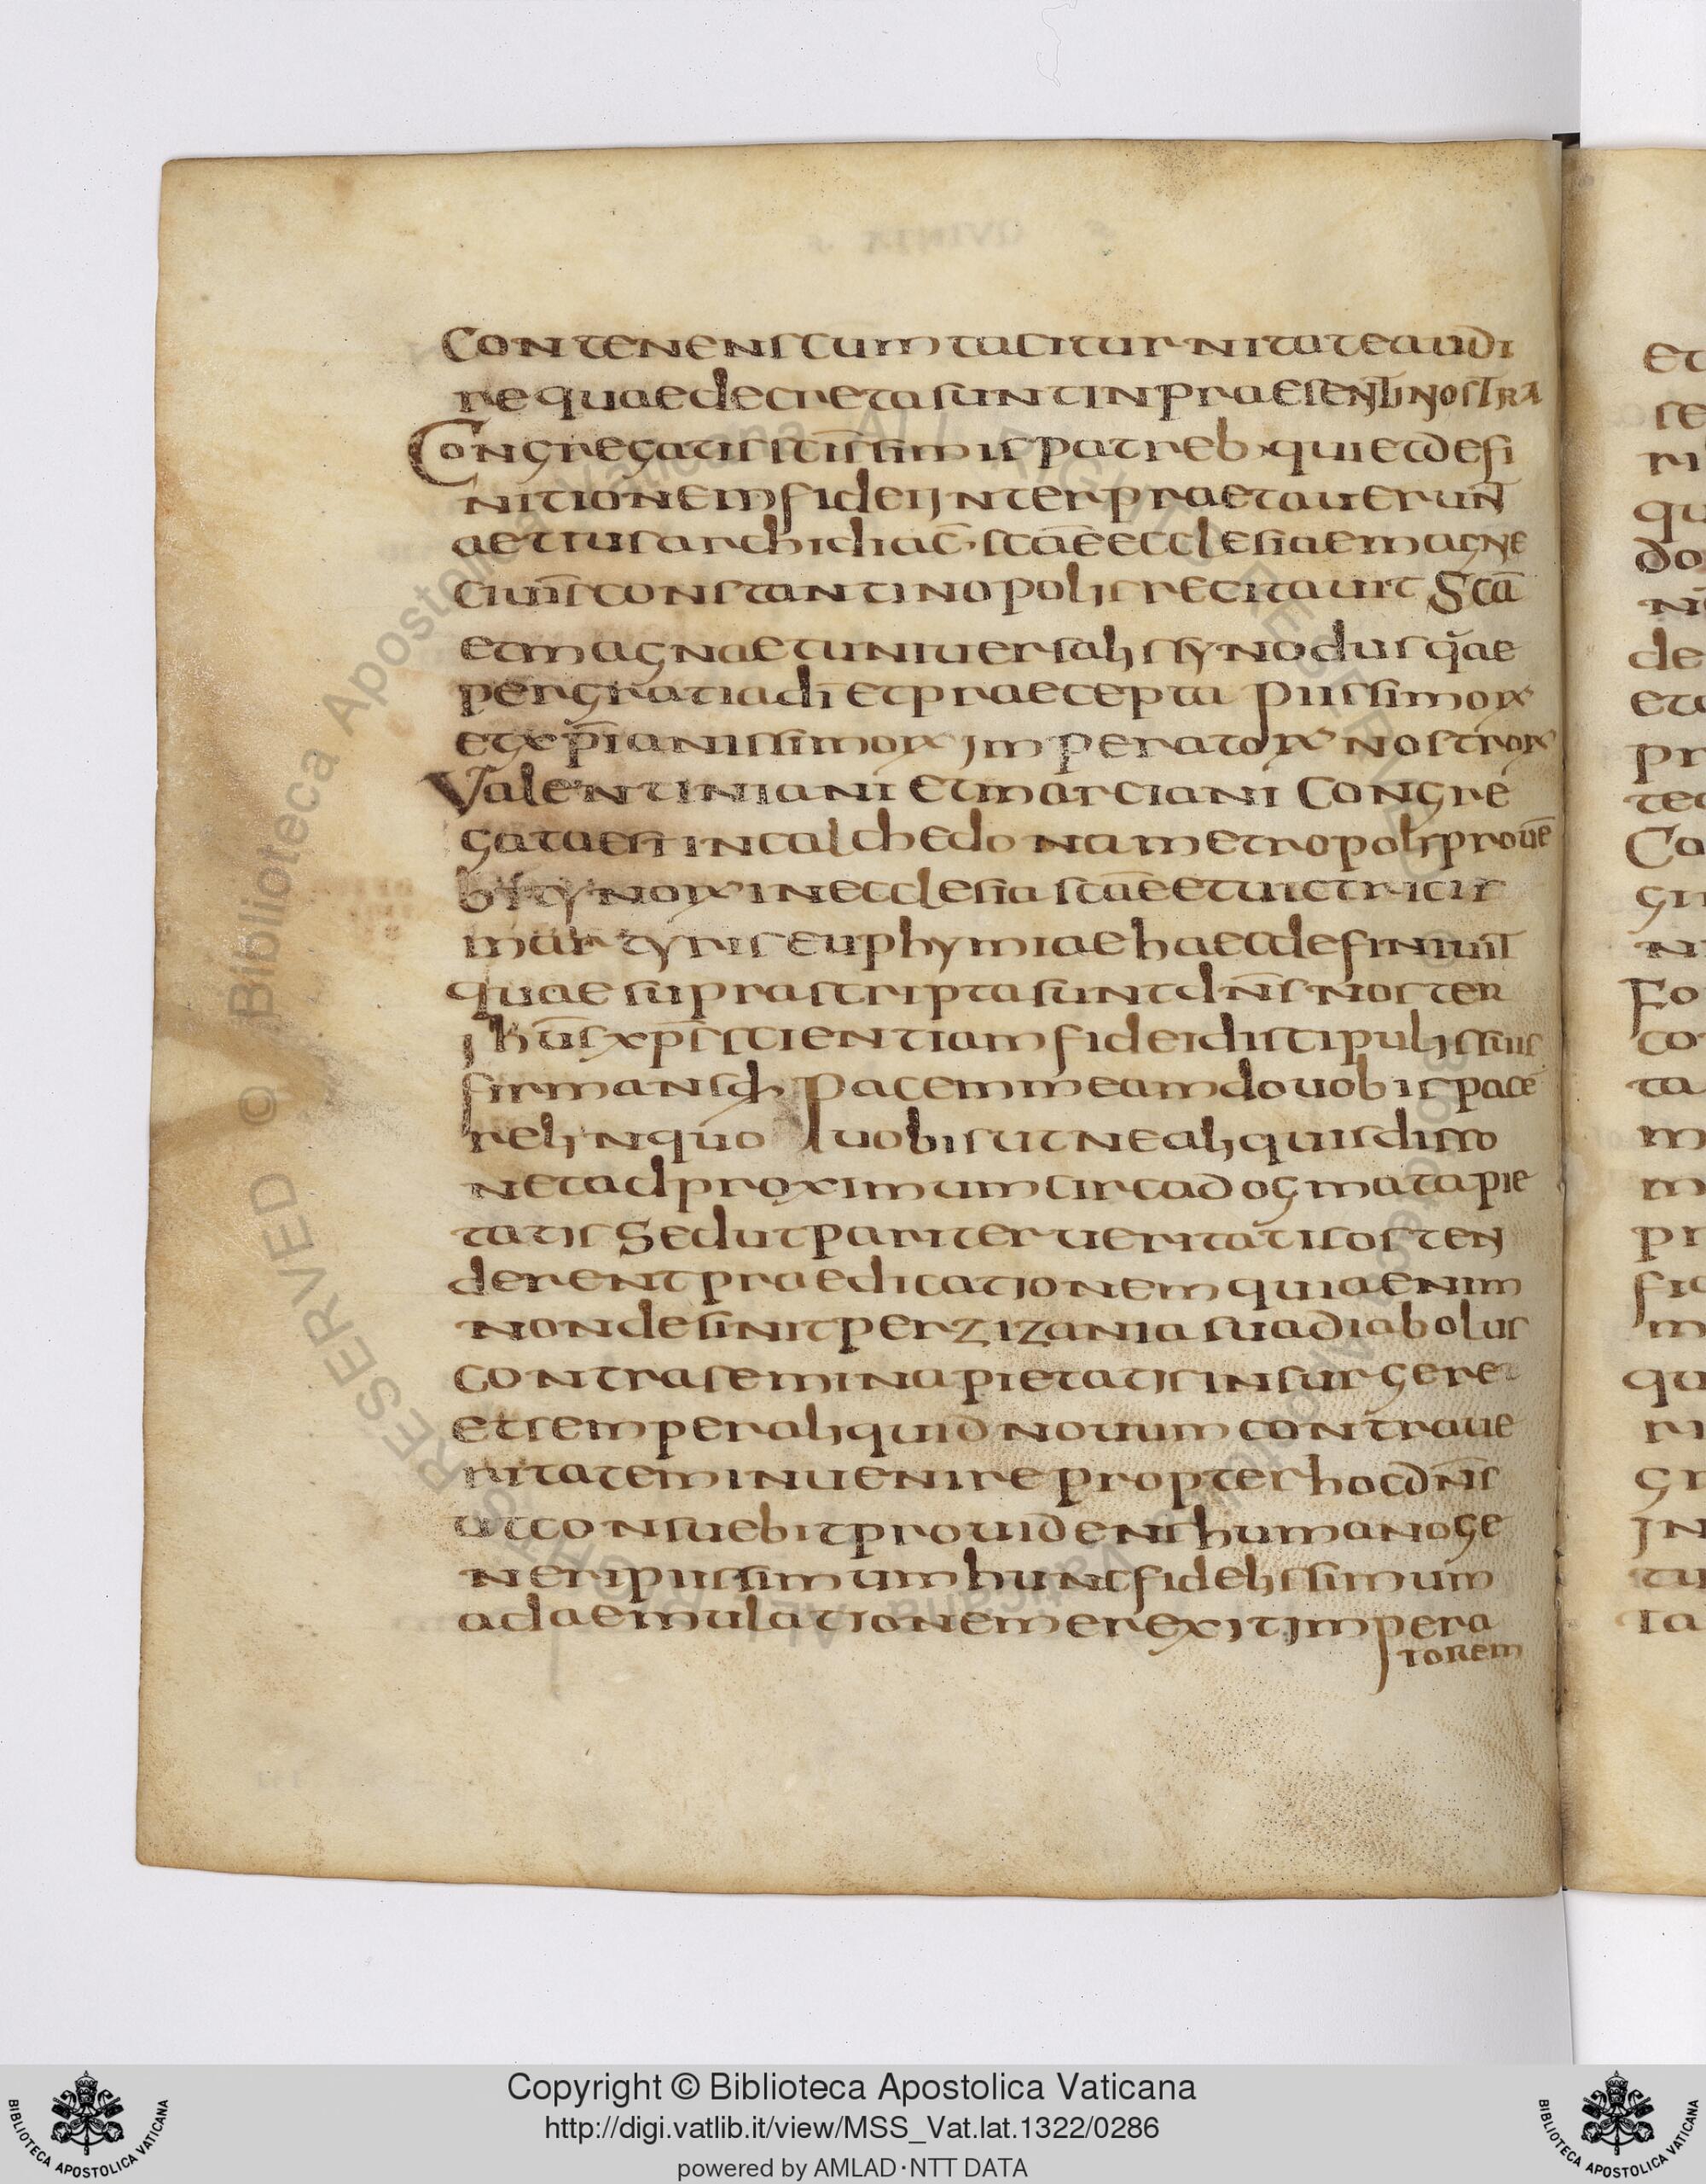 contenens cum taciturnitate audi
re quae decreta sunt in praesenti nostra
Congregatis sc̄issimis patreb· qui et defi
nitionem fidei interpraetauerun̄t
aetius archidiac̄· sc̄ae ecclesiae magne
ciuiīs constantinopolis recitauit Sc̄a
et magna et uniuersalis synodus quae
per gratia dī et praecepta piissimorꝝ
et xp̄ianissimorꝝ imperatorꝝ nostrorꝝ
Valentiniani et marciani congre
gata est in calchedona metropolis prouē
bitynorꝝ in ecclesia sc̄ae et uictricis
martyris euphymiae haec definiuit
quae supra scripta sunt dn̄s noster
ihūs xp̄s scientiam fidei discipulis suis
firmans dī pacem meam do uobis pacē
relinquo uobis ut ne aliquis disso
net ad proximum circa dogmata pie
tatis Sed ut pariter ueritatis osten
derent praedicationem quia enim
non desinit per zizania sua diabolus
contra semina pietatis insurgere
et semper aliquid nouum contra ue
ritatem inuenire propter hoc dn̄s
ut consuebit prouidens humano ge
neri piissimum hunc fidelissimum
ad aemulationem erexit impera
torem
et
se
ri
qu
do
de
pr
Co
gn
Fo
co
ta
m
m
pr
fid
m
qu
ri
gr
in
tu
ta
© Biblioteca Apostolica Vaticana ALL RIGHTS RESERVED
BIBLIOTECA APOSTOLICA VATICANA
Copyright © Biblioteca Apostolica Vaticana
http://digi.vatlib.it/view/MSS_Vat.lat.1322/0286
powered by AMLAD·NTT DATA
BIBLIOTECA APOSTOLICA VATICANA